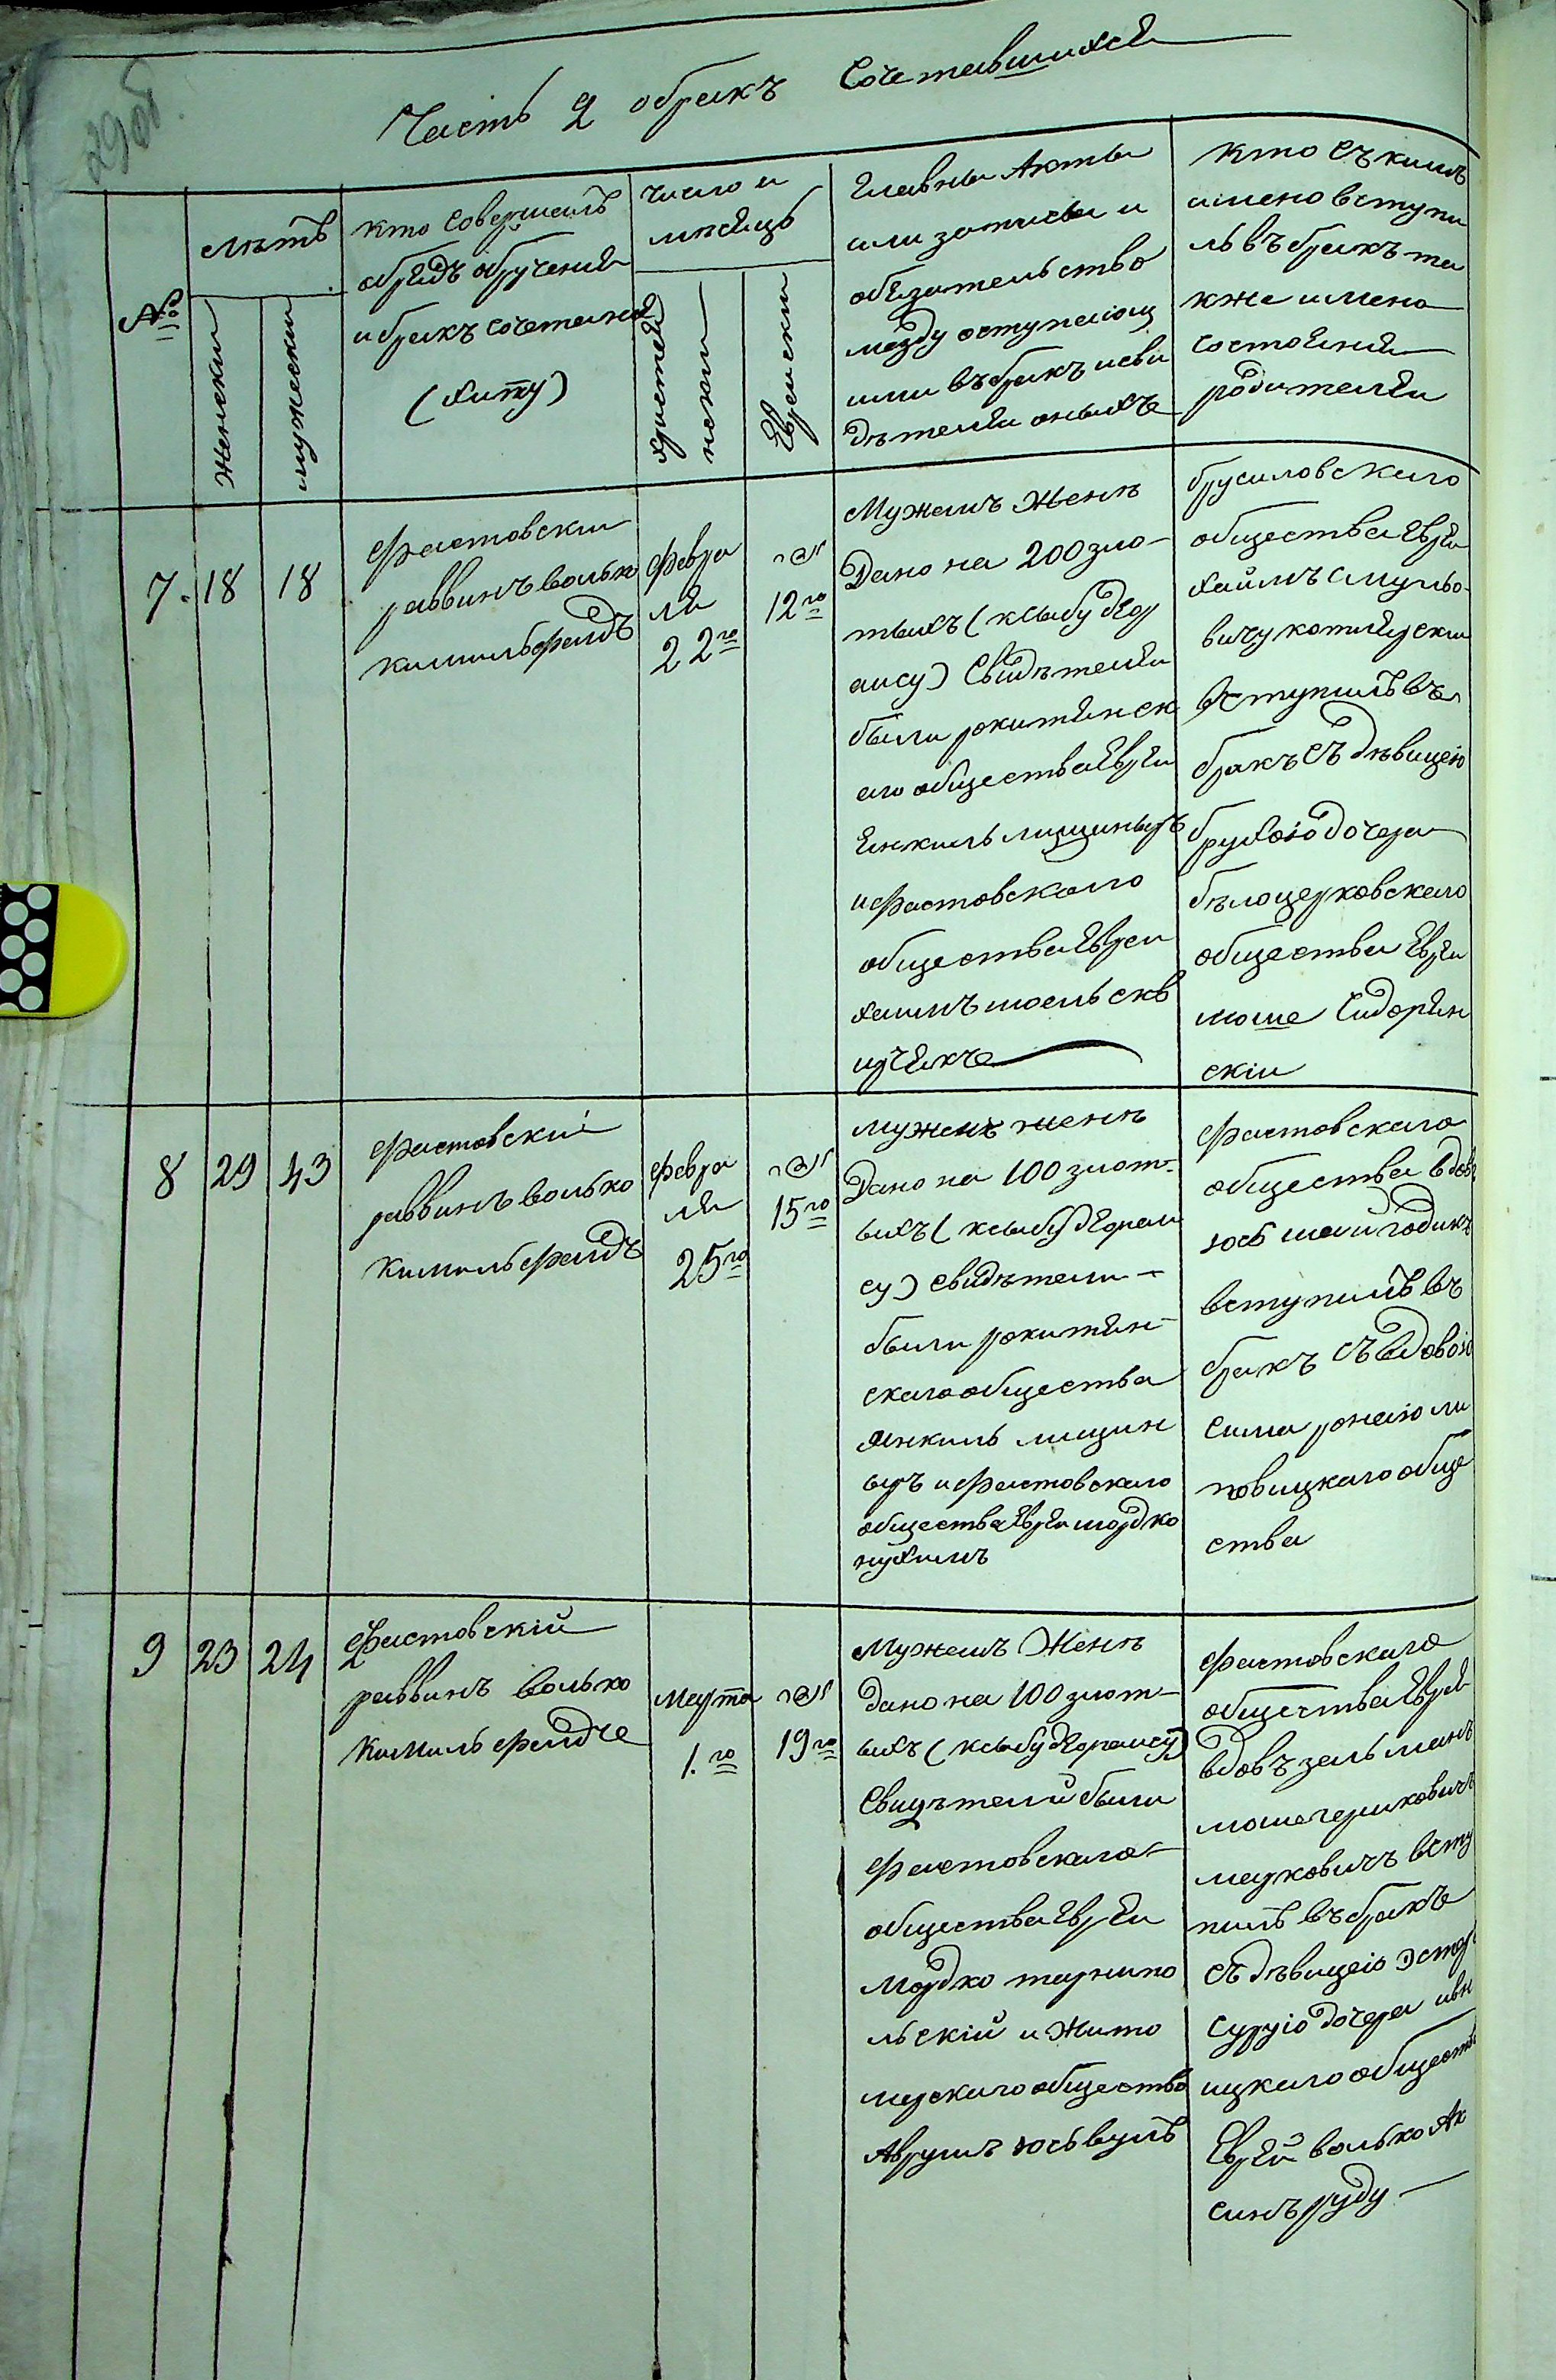 29об.
Часть 2 обракъ Сочетавшихся
№
лѣтъ
Женски
мужески
кто Совершалъ
обрядъ обручения
и бракъ сочетания
(хипу)
число и
мѣсяцъ
христия
нски
Еврейски
Главны Акты
или записы и
обязательство
между вступающ
ими въ бракъ и сви
дѣтели оныхъ
кто Съ кимъ
имено вступи
ль въ бракъ та
кже имена
состояния
родители
7.
18
18
Фастовски
раввинъ волько
кимильфелдъ
Февра
ля
22го
אדר
12го
Мужемъ Женѣ
Дано на 200 зло-
тыхъ (ксыбу дЕор
аису) Свидѣтели
были рокитянск
аго общества Евреи
Янкиль лищинеръ
и фастовскаго
общества Евреи
хаимъ мось скв
ирчикъ
брусиловскаго
общества Еврей
хаимъ Смульо-
вичу котляр ски
вступилъ въ
бракъ съ дѣвицею
брухою дочера
бѣлоцерковскаго
общества Еврей
моше Сидорян
скiи
8
29
43
Фастовскiй
раввинъ волько
Кимильфелдъ
Февра
ля
25го
אדר
15го
мужемъ женѣ
Дано на 100 злот-
ыхъ (ксыбу дЕораи
су) свидѣтели
были рокитян-
скаго общества
Янкиль лищин
еръ и фастовскаго
общества Евреи мордко
нухимъ
Фастовскаго
общества вдов
вступилъ въ
бракъ съ вдовою
Сима
повицкаго обще
ства
9
23
24
Фастовскiй
раввинъ волько
Кимильфелдъ
Марта
1.го
אדר
19го
Мужемъ Женѣ
дано на 100 злот-
ыхъ (ксыбу дЕораису)
Свидѣтелй были
Фастовскаго
общества Евреи
Мордко тарнопо
льскiй и Жито
мирскаго общество
Аврумъ
Фастовскаго
общества Еврей
вдовъ зельманъ
марковичъ всту
пилъ въ бракъ
съ дѣвицею Эстер
Сурою дочера ивн
ицкаго обществ
Еврей волько Ак
синъ руду